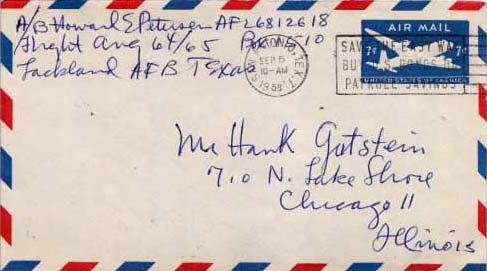 A/B Howard E Petersen AF26812618
Flight Ang 64/65 Box 1510
Lackland AFB Texas
SAN ANTONIO, TEX.
SEP 5
10-AM
1958
AIR MAIL
7¢ 7¢
UNITED STATES OF AMERICA
SAVE THE EASY WAY
BUY U.S. BONDS
PAYROLL SAVINGS
Mr Hank Gutstein
710 N. Lake Shore
Chicago 11
Illinois